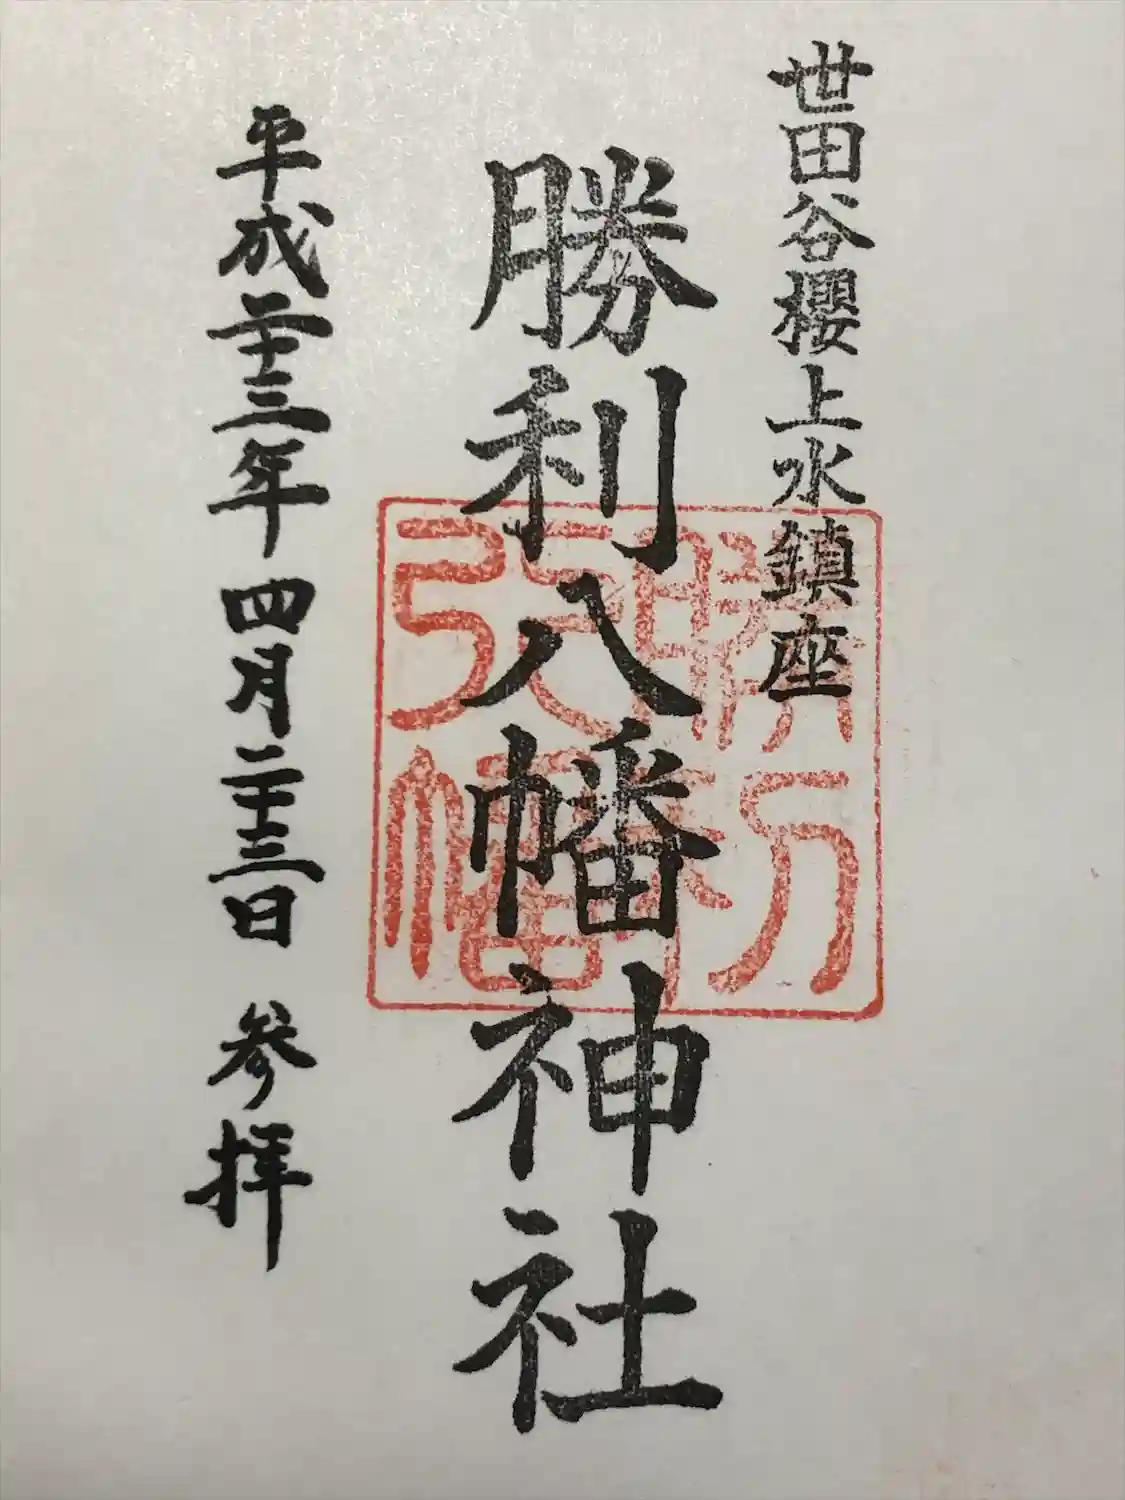 世田谷櫻上水鎮座
勝利八幡神社
平成二十三年四月二十三日 参拝